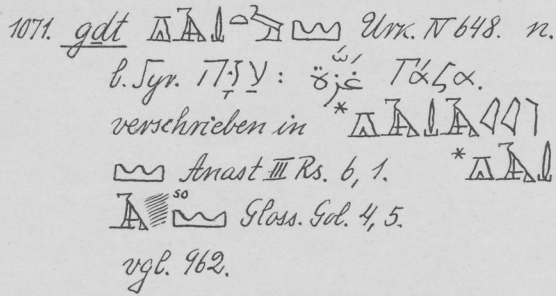 1071. gḏt Urk. IV 648. n.
l. Syr. עַזָּה : غَزَّة Γάζα.
verschrieben in *
Anast III Rs. 6, 1. *
so Gloss. Gol. 4, 5.
vgl. 962.